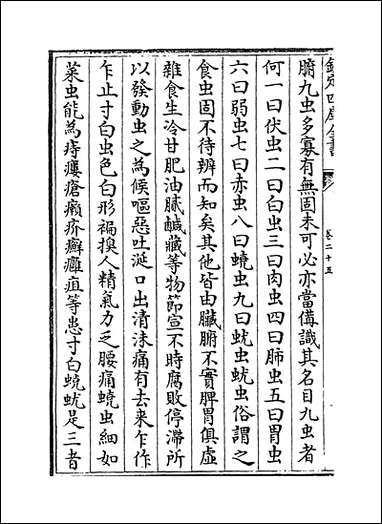 欽定四庫全書
卷二十五
腑九虫多寡有無固未可必亦當備識其名目九虫者
何一曰伏虫二曰白虫三曰肉虫四曰肺虫五曰胃虫
六曰弱虫七曰赤虫八曰蟯虫九曰蚘虫蚘虫俗謂之
食虫固不待辨而知矣其他皆由臟腑不實脾胃俱虛
雜食生冷甘肥油膩鹹藏等物節宣不時腐敗停滯所
以發動虫之為候嘔惡吐涎口出清沫痛有去來乍作
乍止寸白虫色白形褊損人精氣力乏腰痛蟯虫細如
菜虫能為痔瘻瘡癩疥癬癰疽等患寸白蟯蚘是三者